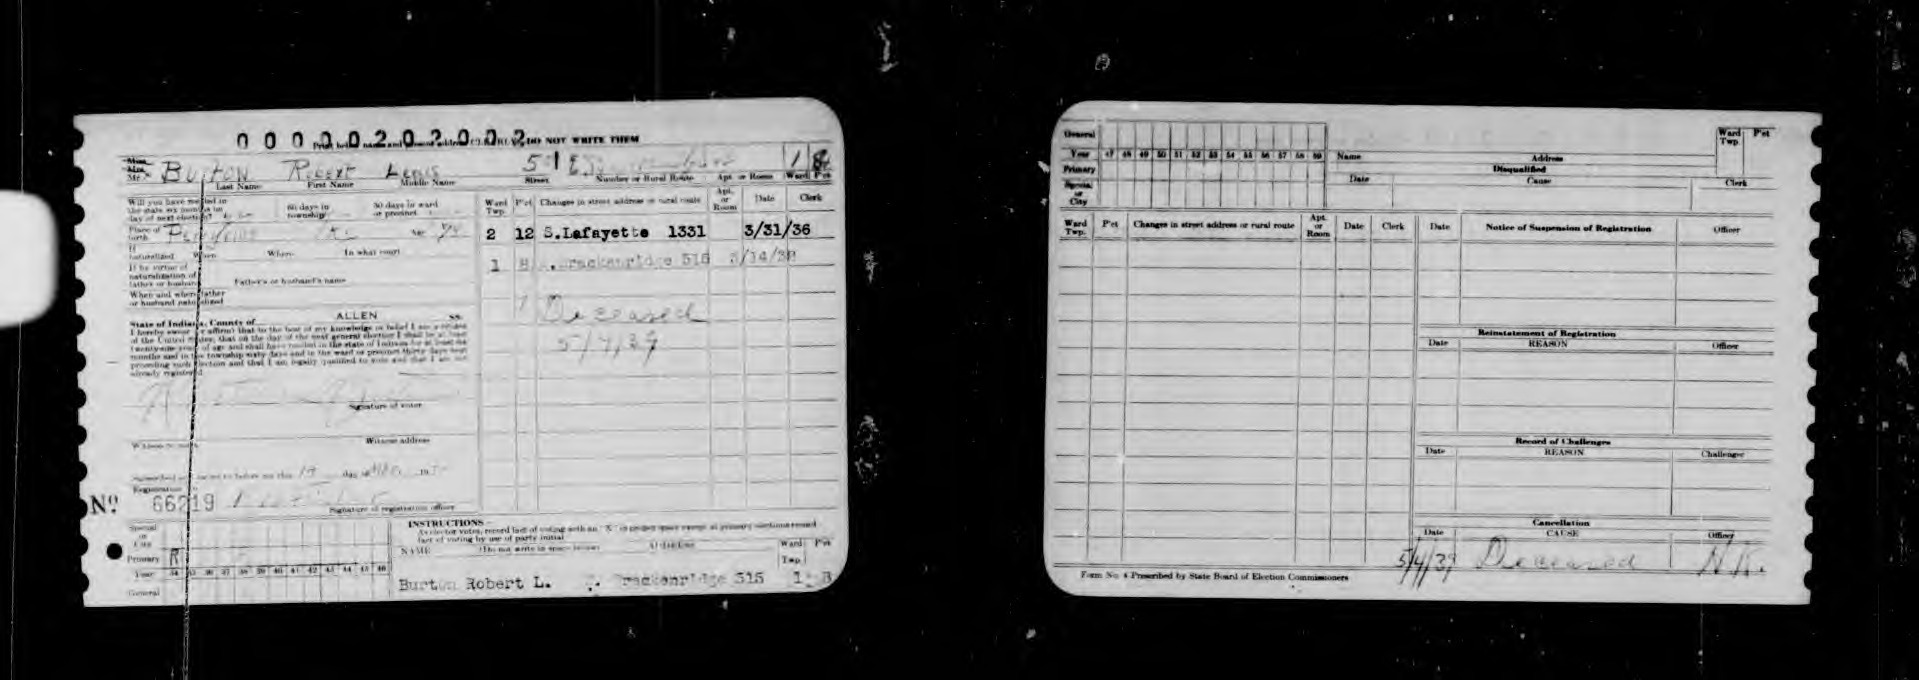 0 0 0 0 0 2 0 2 0 0 2
Print below name and present address CLEARLY. DO NOT WRITE THEM
Miss
Mrs.
Mr. BURTON ROBERT LEWIS 1 8
Last Name First Name Middle Name Street Number or Rural Route Apt. or Room Ward P'ct
Will you have resided in the state six months on day of next election? 60 days in township 30 days in ward or precinct
Ward Twp. P'ct Changes in street address or rural route Apt. or Room Date Clerk
Place of birth Age
2 12 S.Lafayette 1331 3/31/36
If naturalized When Where In what court
1 8 Brackenridge 515
If by virtue of naturalization of father or husband Father's or husband's name
When and where father or husband naturalized
Deceased
State of Indiana, County of ALLEN SS.
I hereby swear (or affirm) that to the best of my knowledge or belief I am a citizen
of the United States; that on the day of the next general election I shall be at least
twenty-one years of age and shall have resided in the state of Indiana for at least six
months and in the township sixty days and in the ward or precinct thirty days next
preceding such election and that I am legally qualified to vote and that I am not
already registered.
Signature of voter
Witness name Witness address
Subscribed and sworn to before me this 19 day of
Registration
No. 66219
Signature of registration officer
Special or City
Primary R
Year 34 35 36 37 38 39 40 41 42 43 44 45 46
General
INSTRUCTIONS
As elector votes, record fact of voting with an "X" in proper space except at primary elections record
fact of voting by use of party initial
NAME (Do not write in space below) ADDRESS Ward Twp. P'ct
Burton Robert L. Brackenridge 515 1 8
General
Year 47 48 49 50 51 52 53 54 55 56 57 58 59
Primary
Special or City
Name Address Ward Twp. P'ct
Disqualified
Date Cause Clerk
Ward Twp. P'ct Changes in street address or rural route Apt. or Room Date Clerk
Date Notice of Suspension of Registration Officer
Reinstatement of Registration
Date REASON Officer
Record of Challenges
Date REASON Challenger
Cancellation
Date CAUSE Officer
5/4/39 Deceased N.K.
Form No. 4 Prescribed by State Board of Election Commissioners